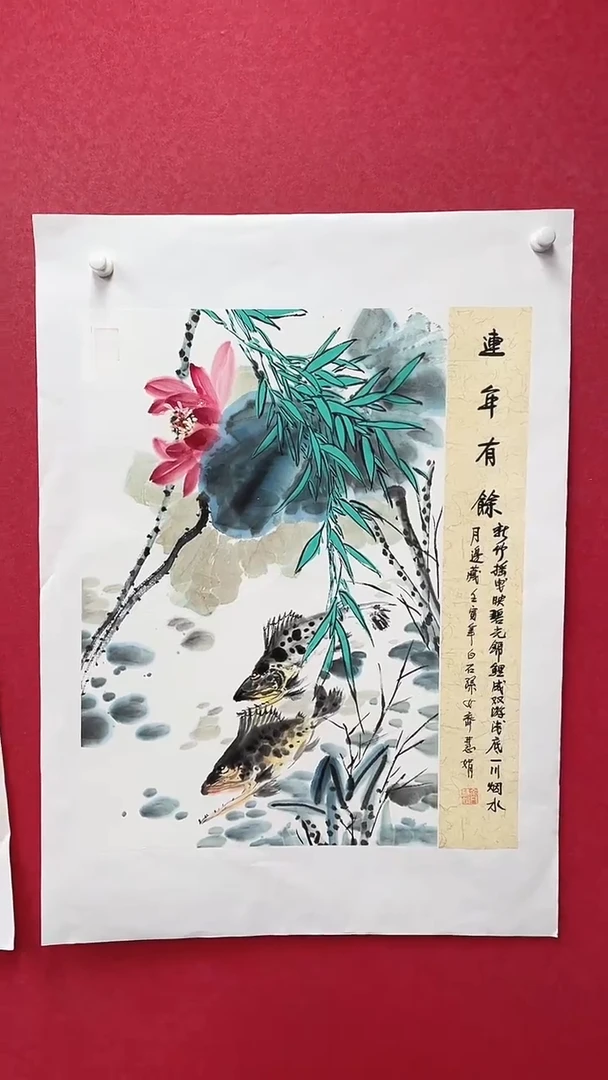 連年有餘
新竹摇曳映碧光錦鯉成双游浅底一川烟水
月邊藏壬寅年白石孫女齊慧娟